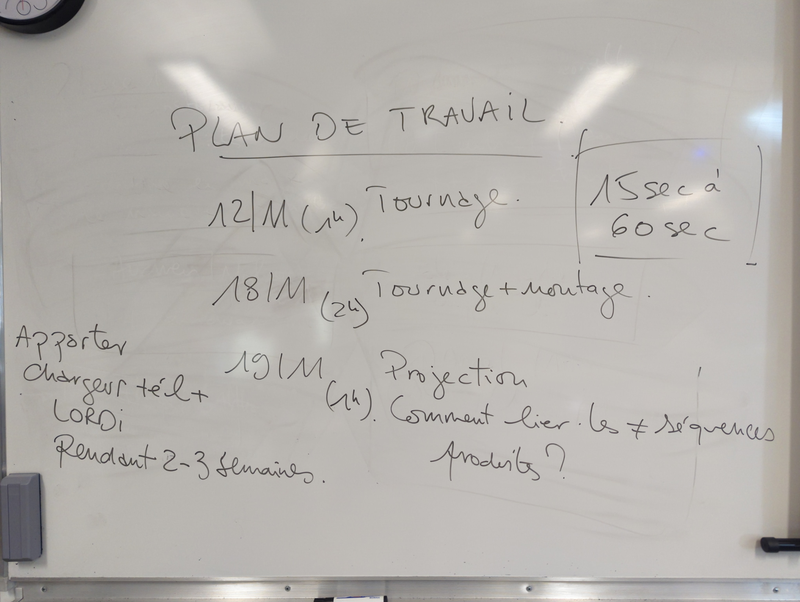 PLAN DE TRAVAIL.
12/11 (1h). Tournage.
15 sec à
60 sec
18/11 (2h) Tournage + montage.
19/11 (1h). Projection
Comment lier les ≠ séquences
produites ?
Apporter
chargeur tél +
LORDI
Pendant 2-3 semaines.